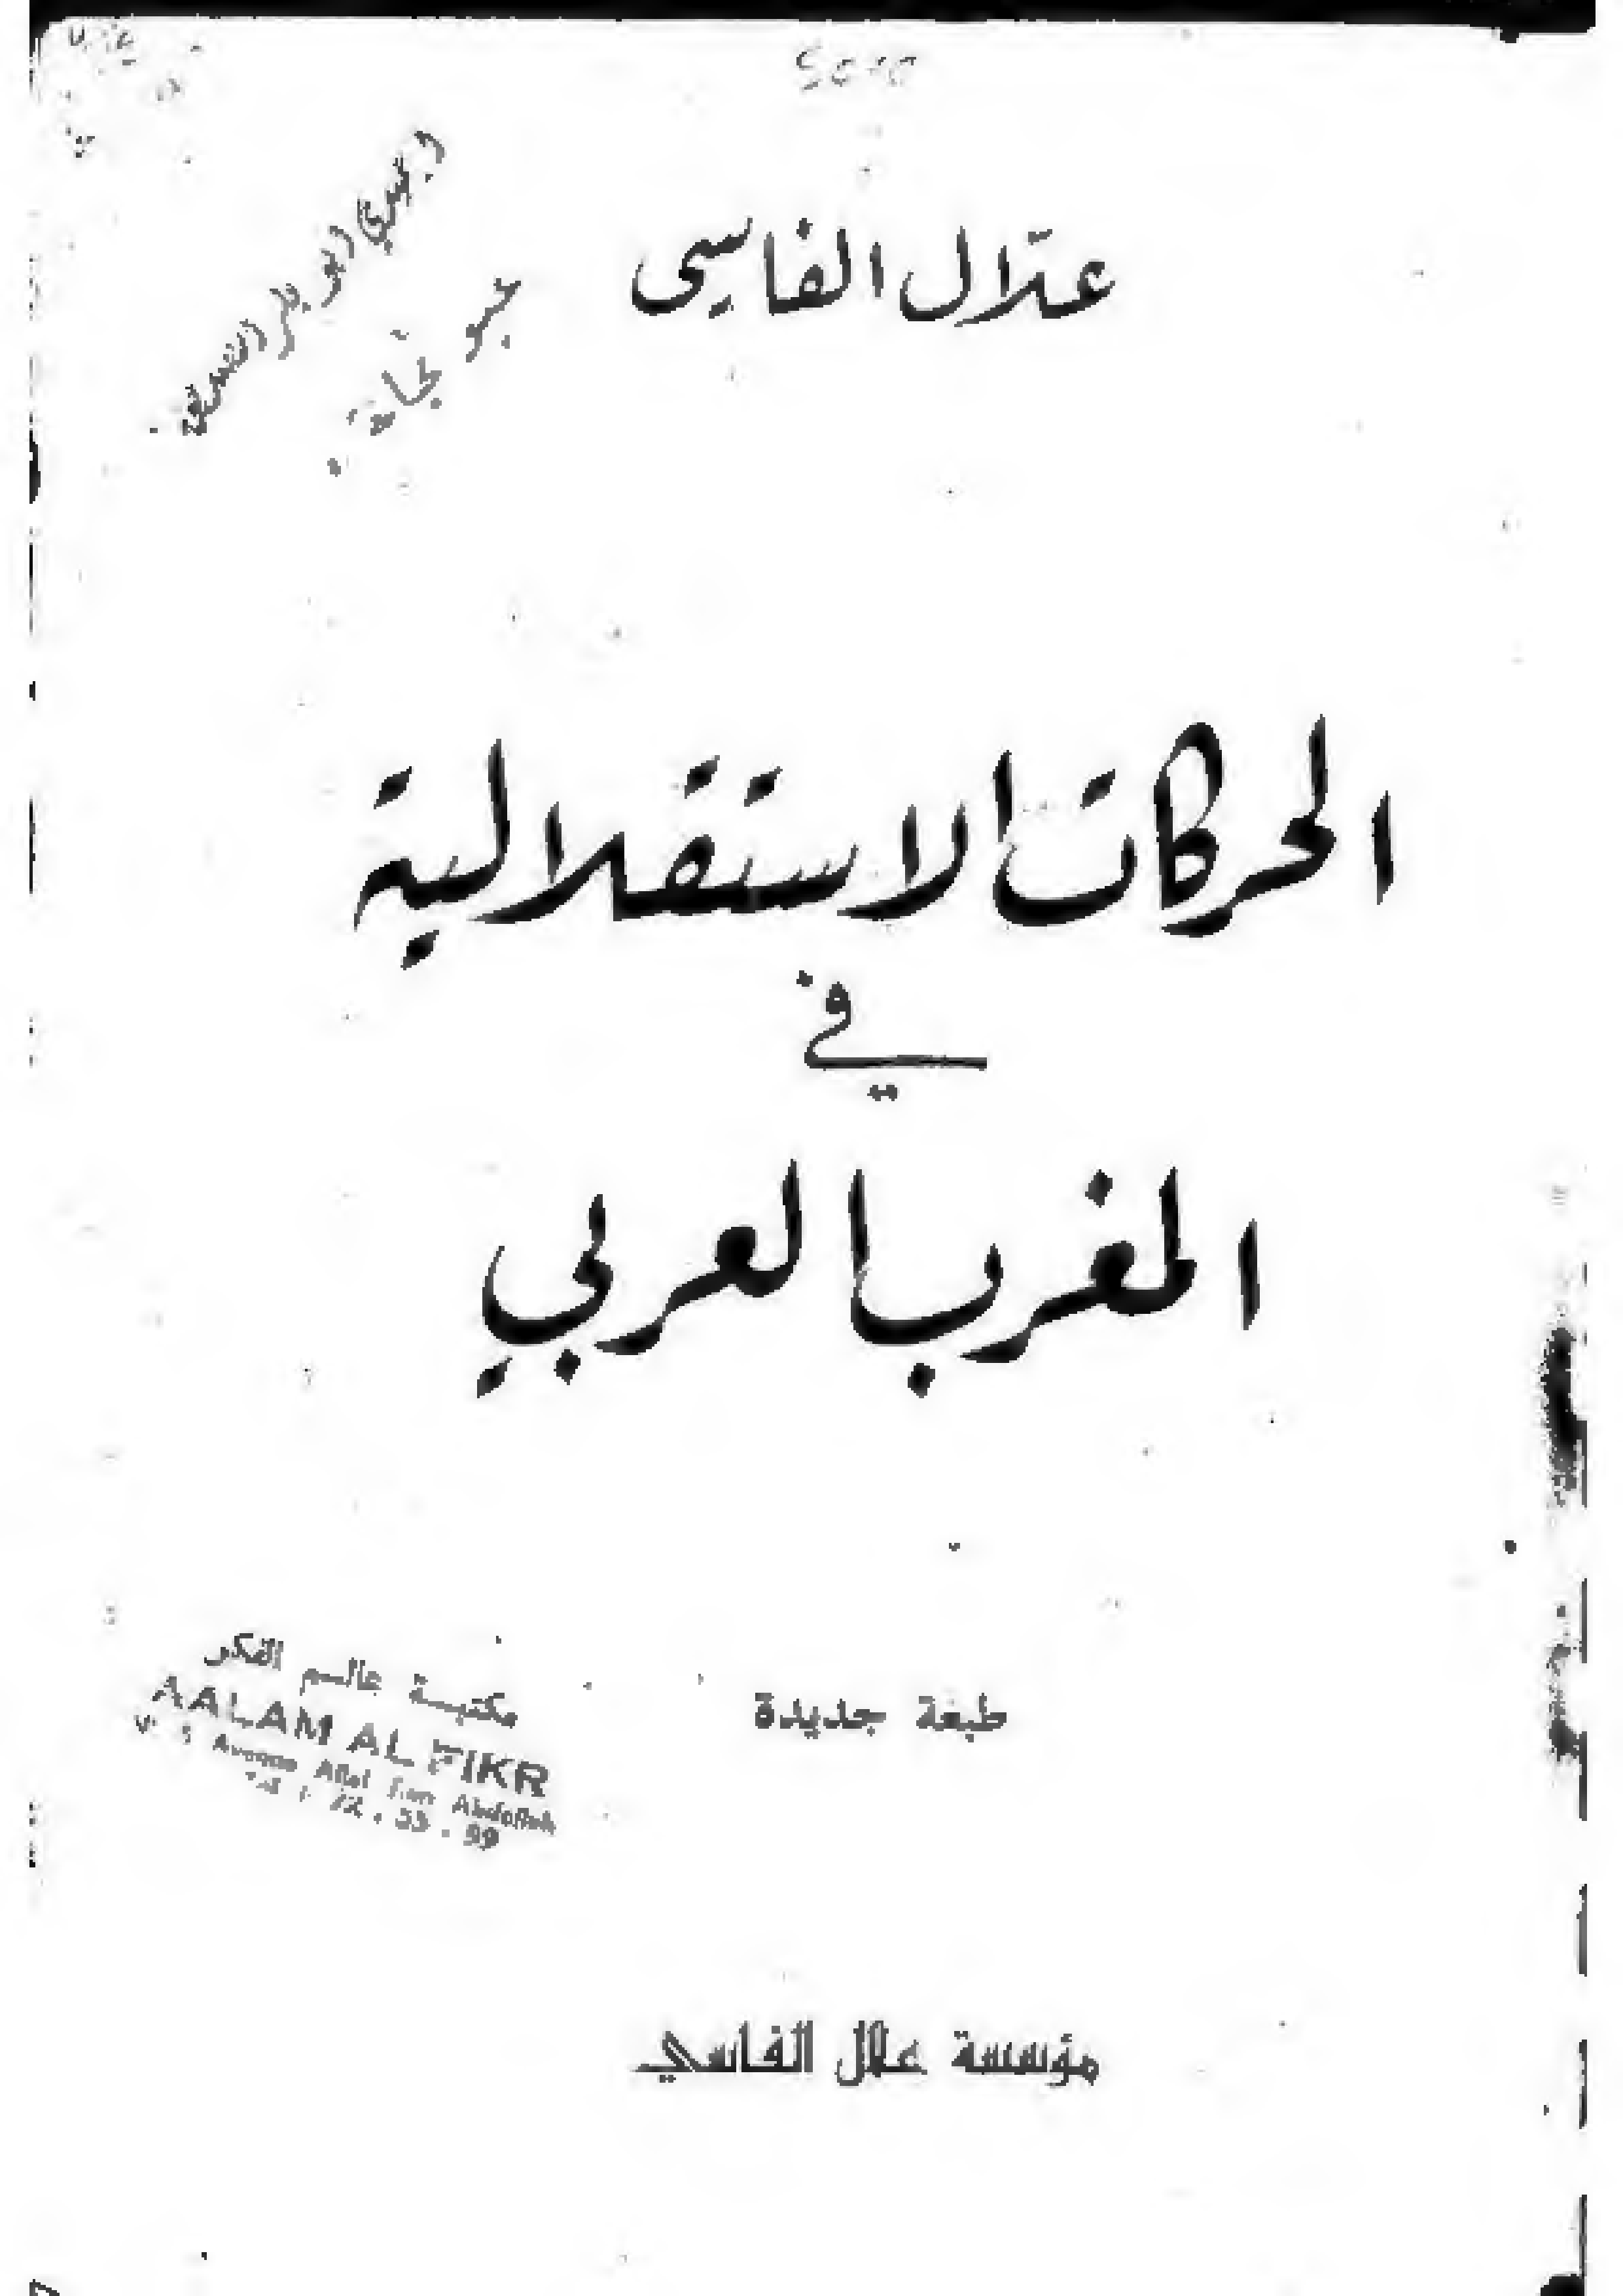 علّال الفاسي
الحركات الاستقلالية
في
المغرب العربي
طبعة جديدة
مكتبة عالم الفكر
AALAM AL FIKR
Avenue Allal Ben Abdallah
72 . 55 . 99
مؤسسة علال الفاسي